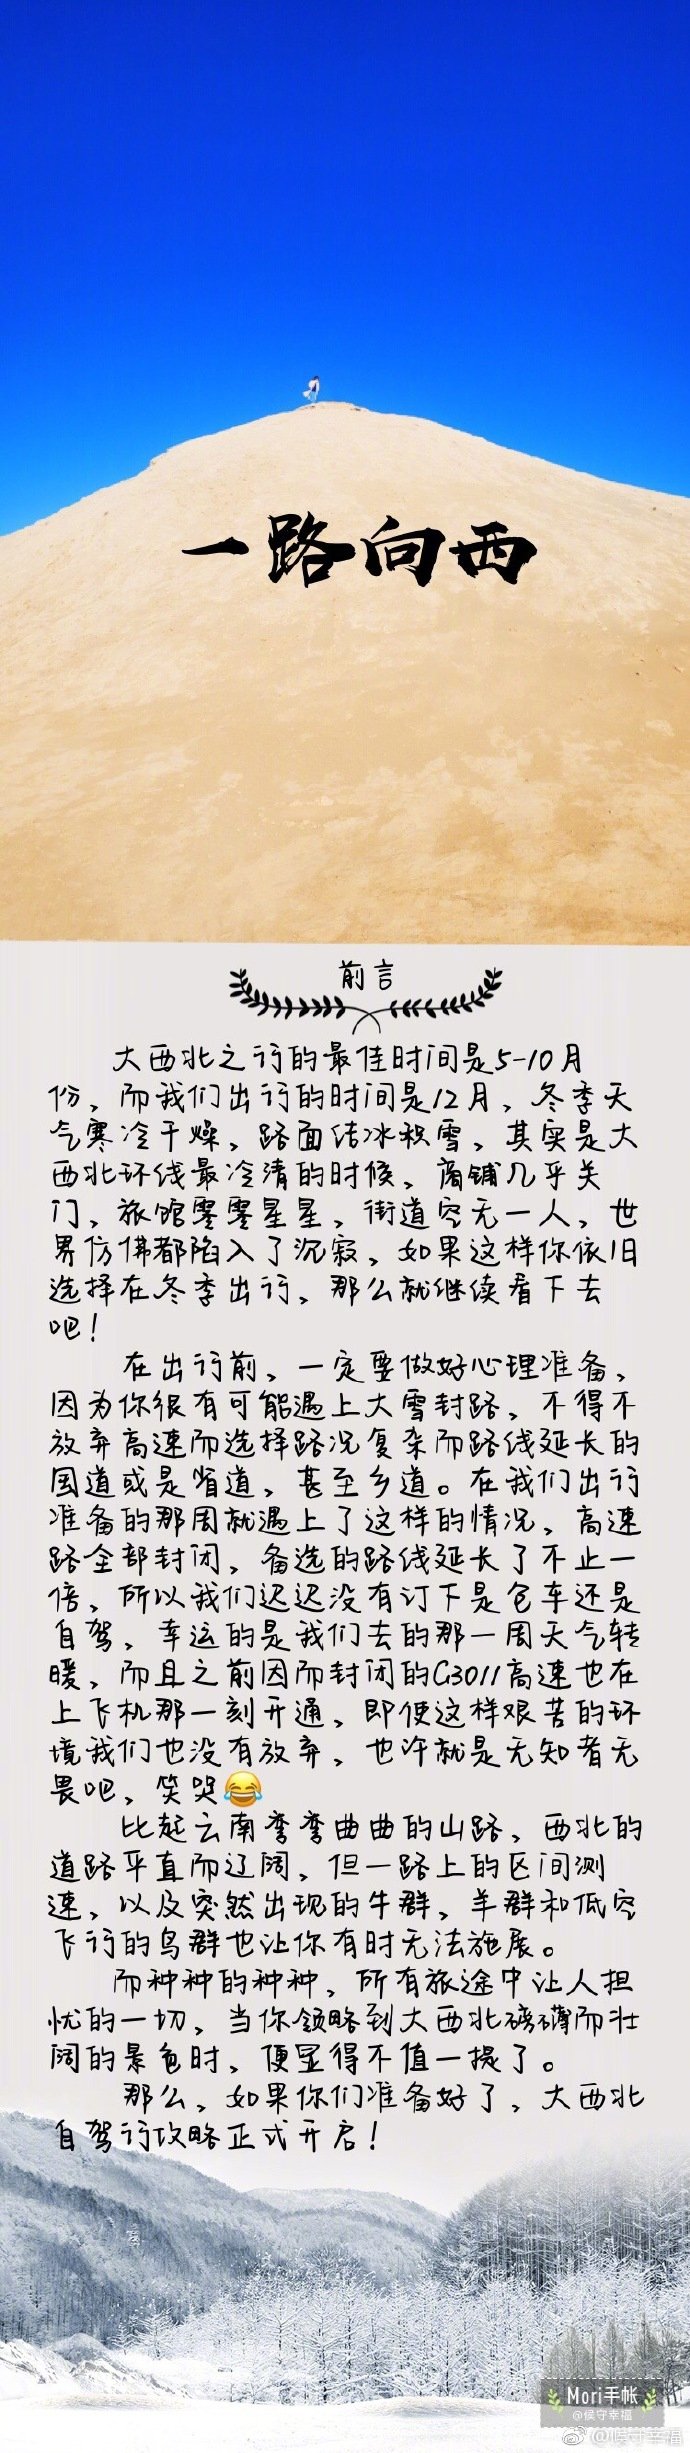 一路向西
前言
大西北之行的最佳时间是5-10月
份，而我们出行的时间是12月，冬季天
气寒冷干燥，路面结冰积雪，其实是大
西北环线最冷清的时候，商铺几乎关
门，旅馆零零星星，街道空无一人，世
界仿佛都陷入了沉寂，如果这样你依旧
选择在冬季出行，那么就继续看下去
吧！
在出行前，一定要做好心理准备，
因为你很有可能遇上大雪封路，不得不
放弃高速而选择路况复杂而路线延长的
国道或是省道，甚至乡道。在我们出行
准备的那周就遇上了这样的情况，高速
路全部封闭，备选的路线延长了不止一
倍，所以我们迟迟没有订下是包车还是
自驾，幸运的是我们去的那一周天气转
暖，而且之前因而封闭的G3011高速也在
上飞机那一刻开通，即使这样艰苦的环
境我们也没有放弃，也许就是无知者无
畏吧，笑哭😂
比起云南弯弯曲曲的山路，西北的
道路平直而辽阔，但一路上的区间测
速，以及突然出现的牛群，羊群和低空
飞行的鸟群也让你有时无法施展。
而种种的种种，所有旅途中让人担
忧的一切，当你领略到大西北磅礴而壮
阔的景色时，便显得不值一提了。
那么，如果你们准备好了，大西北
自驾行攻略正式开启！
Mori手帐
@候守幸福
@候守幸福